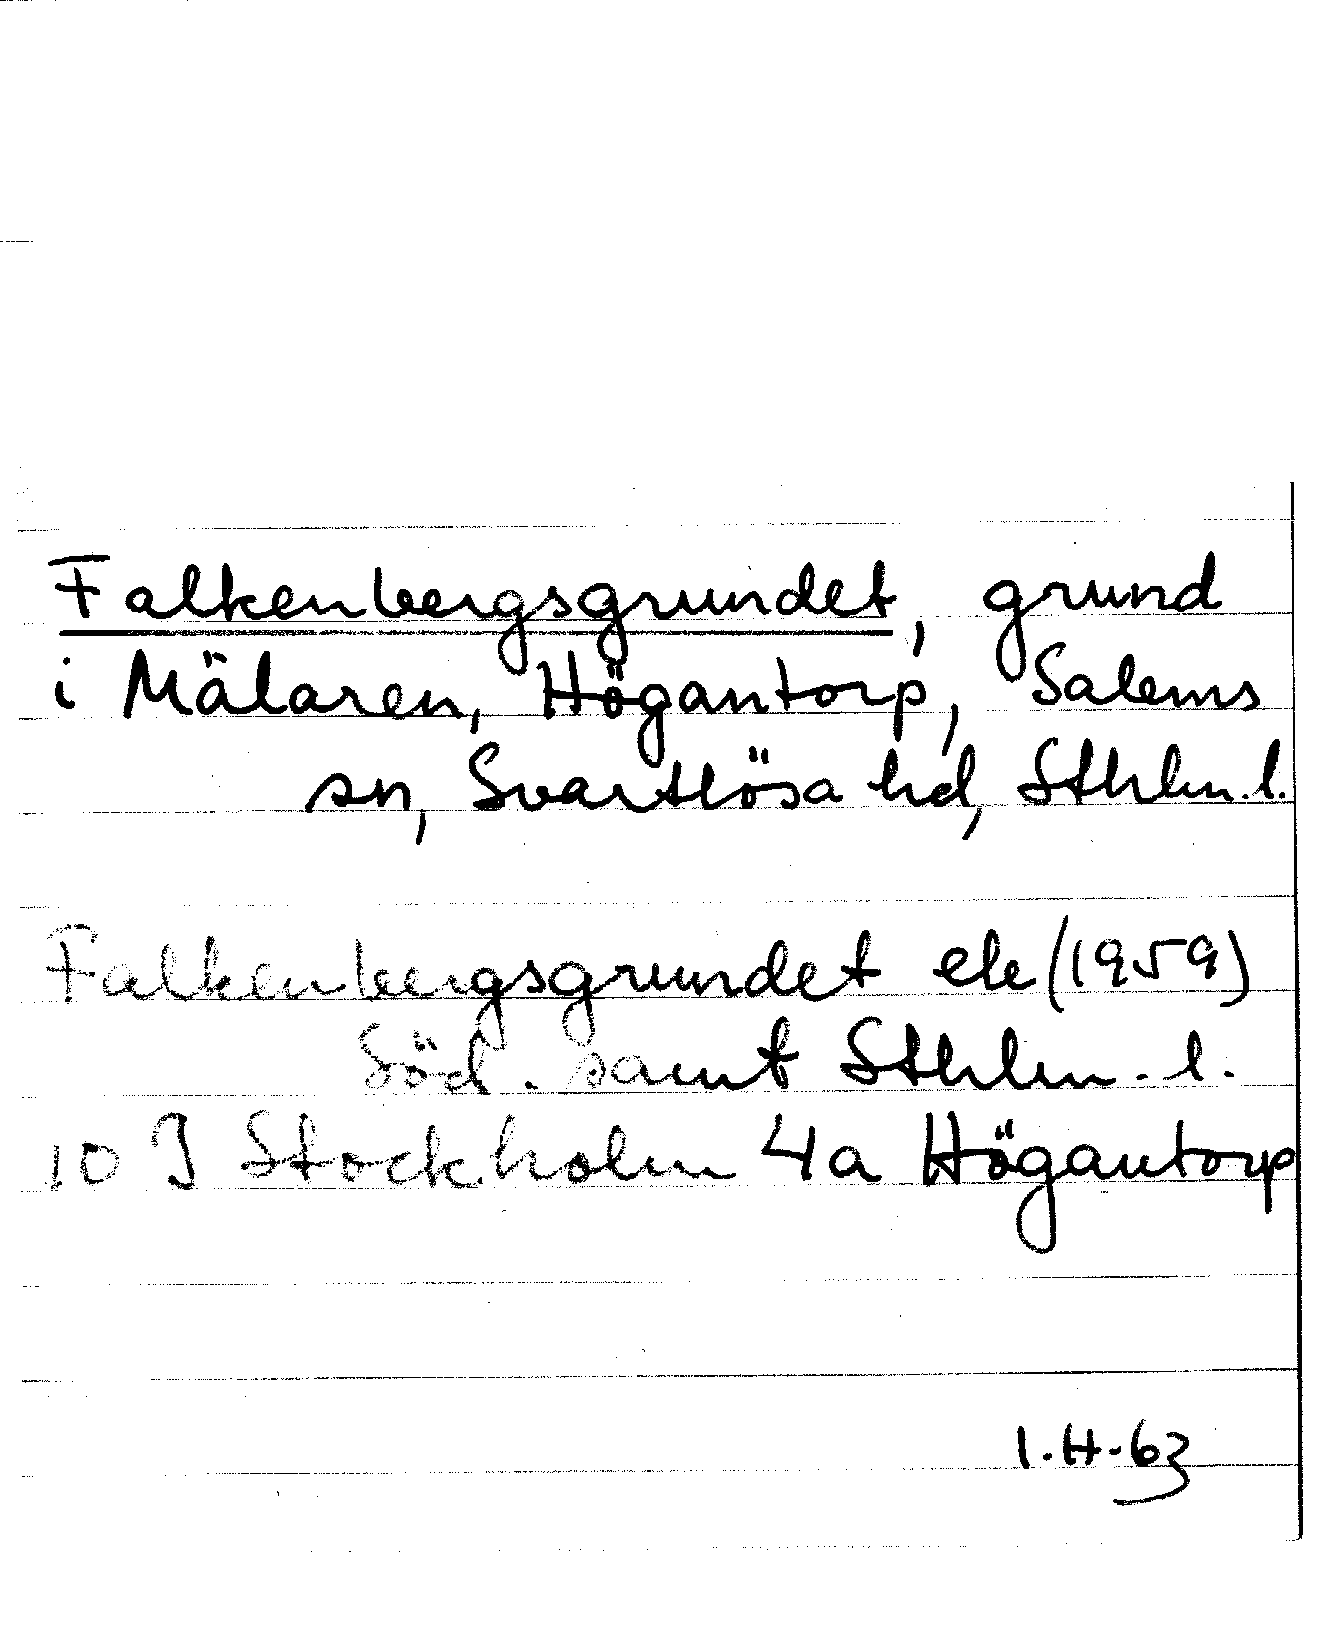 Falkenbergsgrundet, grund
i Mälaren, Högantorp, Salems
sn, Svartlösa hd, Sthlm.l.
Falkenbergsgrundet ek (1959)
Söd. samt Sthlm. l.
10 J Stockholm 4a Högantorp
I.H-63